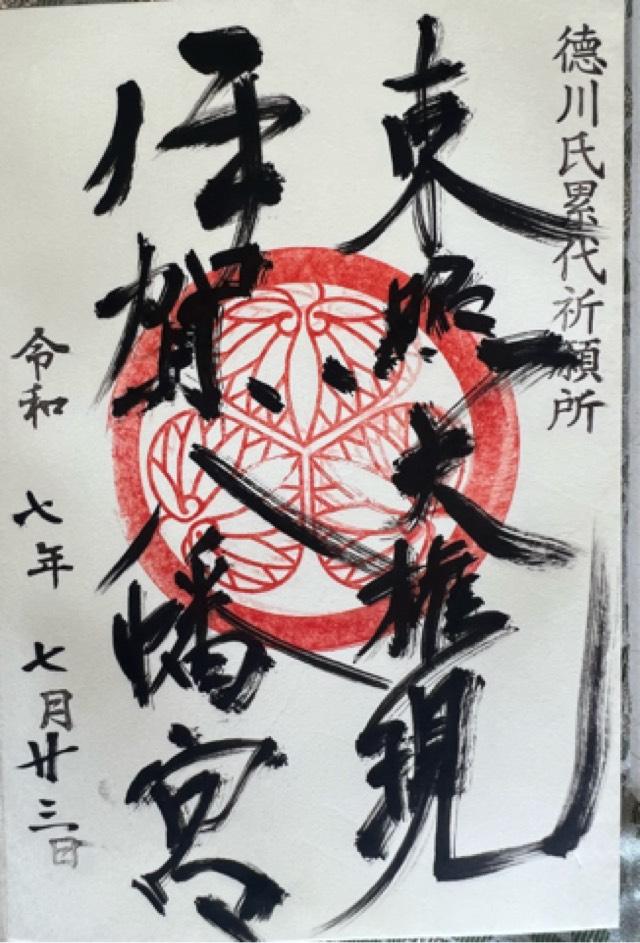 徳川氏累代祈願所
東照大権現
伊賀八幡宮
令和 七年 七月廿三日